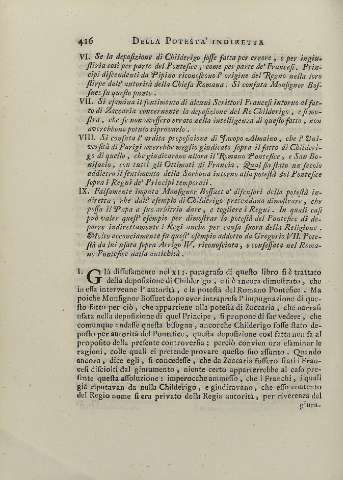 416 DELLA POTESTA' INDIRETTA
VI. Se la deposizione di Childerigo fosse fatta per errore, o per ingiu-
stizia così per parte del Pontefice, come per parte de' Francesi. Prin-
cipi discendenti da Pipino riconobbero l'origine del Regno nella loro
stirpe dall'autorità della Chiesa Romana. Si confuta Monsignor Bos-
suet su questo punto.
VII. Si esamina il sentimento di alcuni Scrittori Francesi intorno al fat-
to di Zaccaria concernente la deposizione del Re Childerigo, e si mo-
stra, che se non avessero errato nella intelligenza di questo fatto, non
averebbono potuto riprovarlo.
VIII. Si confuta l'ardita proposizione di Jacopo Almaino, che l'Uni-
versità di Parigi averebbe meglio giudicato sopra il fatto di Childeri-
go di quello, che giudicarono allora il Romano Pontefice, e San Bo-
nifacio, con tutti gli Ottimati di Francia. Qual sia stato un secolo
addietro il sentimento della Sorbona intorno alla potestà del Pontefice
sopra i Regni de' Principi temporali.
IX. Falsamente imputa Monsignor Bossuet a' difensori della potestà in-
diretta, che dall'esempio di Childerigo pretendano dimostrare, che
possa il Papa a suo arbitrio dare, e togliere i Regni. In quali casi
può valere quest'esempio per dimostrar la potestà del Pontefice di de-
porre indirettamente i Regi anche per causa fuora della Religione.
Quanto acconciamente fu quest'esempio addotto da Gregorio VII. Pote-
stà da lui usata sopra Arrigo IV. riconosciuta, e confessata nel Roma-
no Pontefice dalla antichità.
I. Già diffusamente nel XII. paragrafo di questo libro si è trattato
della deposizione di Childerigo, ed è ancora dimostrato, che
in essa intervenne l'autorità, e la potestà del Romano Pontefice. Ma
poichè Monsignor Bossuet dopo aver intrapresa l'impugnazione di que-
sto fatto per ciò, che appartiene alla potestà di Zaccaria, che narrasi
usata nella deposizione di quel Principe, si propone di far vedere, che
comunque andasse questa bisogna, ancorchè Childerigo fosse stato de-
posto per autorità del Pontefice, questa deposizione così fatta non fa al
proposito della presente controversia: perciò convien ora esaminar le
ragioni, colle quali ei pretende provare questo suo assunto. Quando
ancora, dice egli, si concedesse, che da Zaccaria fossero stati i Fran-
cesi disciolti dal giuramento, niente certo apparterrebbe al caso pre-
sente questa assoluzione: imperocchè ammesso, che i Franchi, i quali
già riputavan da nulla Childerigo, e giudicavano, che esso contento
del Regio nome si era privato della Regia autorità, per riverenza del
giura-